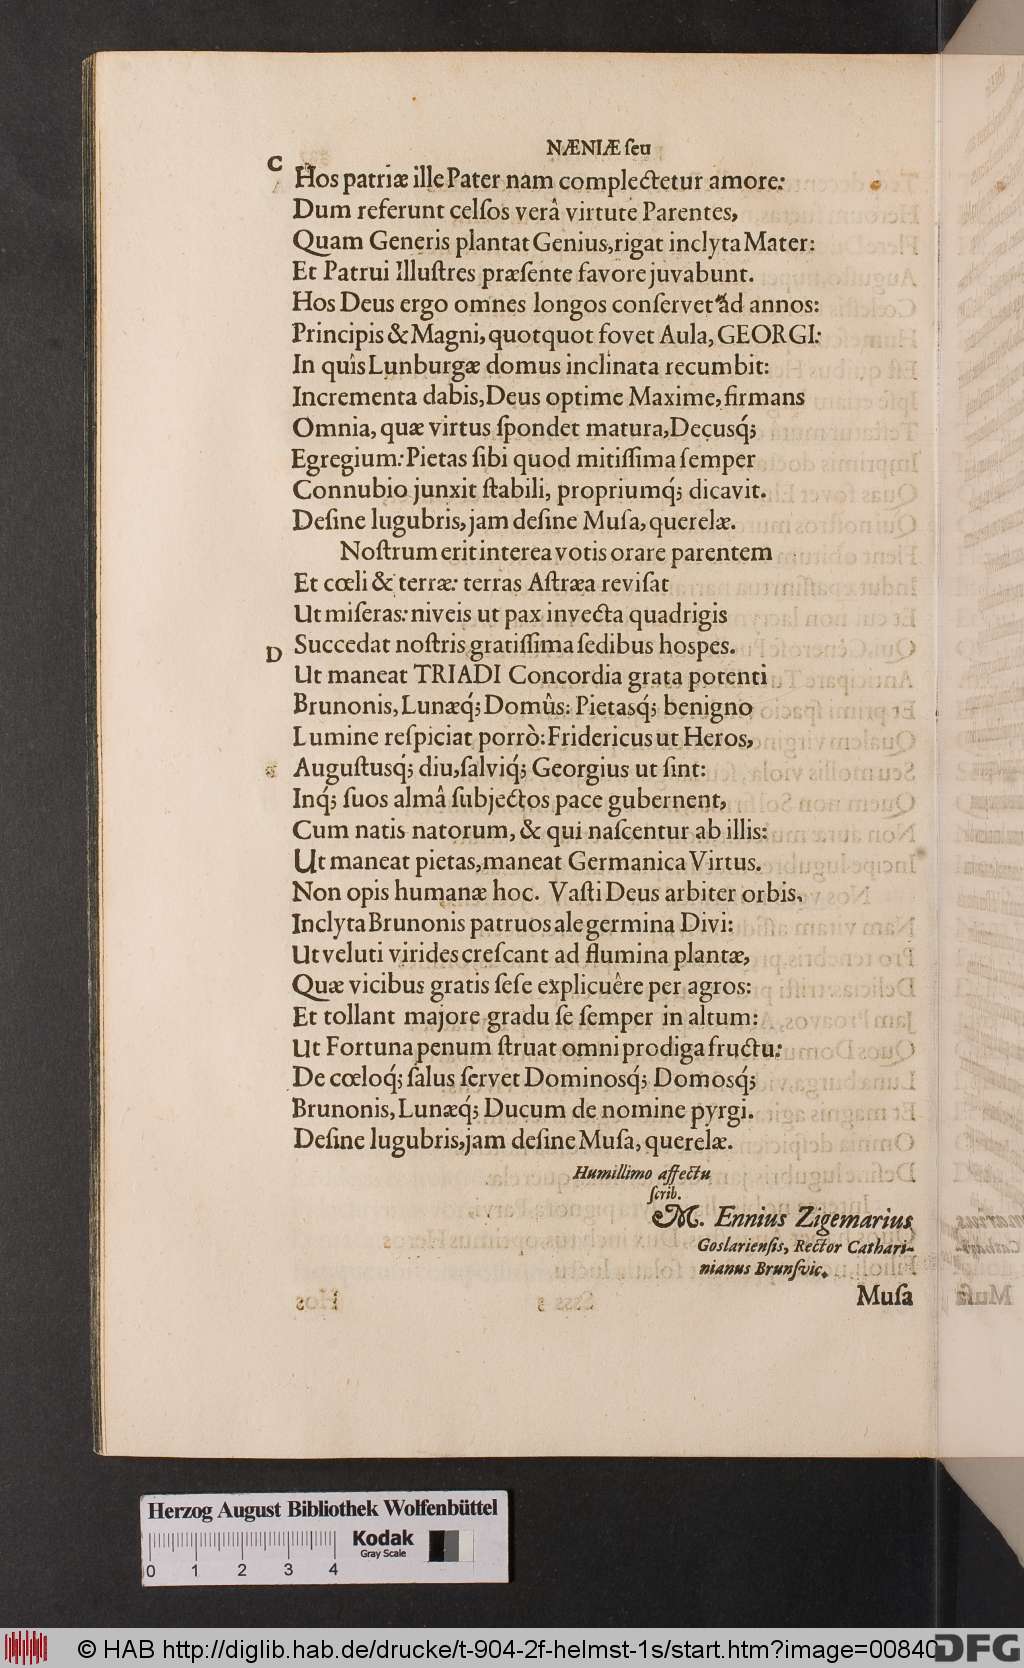 NÆNIÆ ſeu
C
Hos patriæ ille Pater nam complectetur amore:
Dum referunt celſos verâ virtute Parentes,
Quam Generis plantat Genius, rigat inclyta Mater:
Et Patrui Illuſtres præſente favore juvabunt.
Hos Deus ergo omnes longos conſervet ad annos:
Principis & Magni, quotquot fovet Aula, GEORGI:
In quîs Lunburgæ domus inclinata recumbit:
Incrementa dabis, Deus optime Maxime, firmans
Omnia, quæ virtus ſpondet matura, Decusq́;
Egregium: Pietas ſibi quod mitiſſima ſemper
Connubio junxit ſtabili, propriumq́; dicavit.
Deſine lugubris, jam deſine Muſa, querelæ.
Noſtrum erit interea votis orare parentem
Et cœli & terræ: terras Aſtræa reviſat
Ut miſeras: niveis ut pax invecta quadrigis
Succedat noſtris gratiſſima ſedibus hospes.
D
Ut maneat TRIADI Concordia grata potenti
Brunonis, Lunæq́; Domûs: Pietasq́; benigno
Lumine reſpiciat porrò: Fridericus ut Heros,
Auguſtusq́; diu, ſalviq́; Georgius ut ſint:
Inq́; ſuos almâ ſubjectos pace gubernent,
Cum natis natorum, & qui naſcentur ab illis:
Ut maneat pietas, maneat Germanica Virtus.
Non opis humanæ hoc. Vaſti Deus arbiter orbis,
Inclyta Brunonis patruos ale germina Divi:
Ut veluti virides creſcant ad flumina plantæ,
Quæ vicibus gratis ſeſe explicuêre per agros:
Et tollant majore gradu ſe ſemper in altum:
Ut Fortuna penum ſtruat omni prodiga fructu:
De cœloq́; ſalus ſervet Dominosq́; Domosq́;
Brunonis, Lunæq́; Ducum de nomine pyrgi.
Deſine lugubris, jam deſine Muſa, querelæ.
Humillimo affectu
ſcrib.
M. Ennius Zigemarius
Goslarienſis, Rector Cathari-
nianus Brunſvic.
Muſa
Herzog August Bibliothek Wolfenbüttel
Kodak
Gray Scale
0 1 2 3 4
© HAB http://diglib.hab.de/drucke/t-904-2f-helmst-1s/start.htm?image=00840
DFG